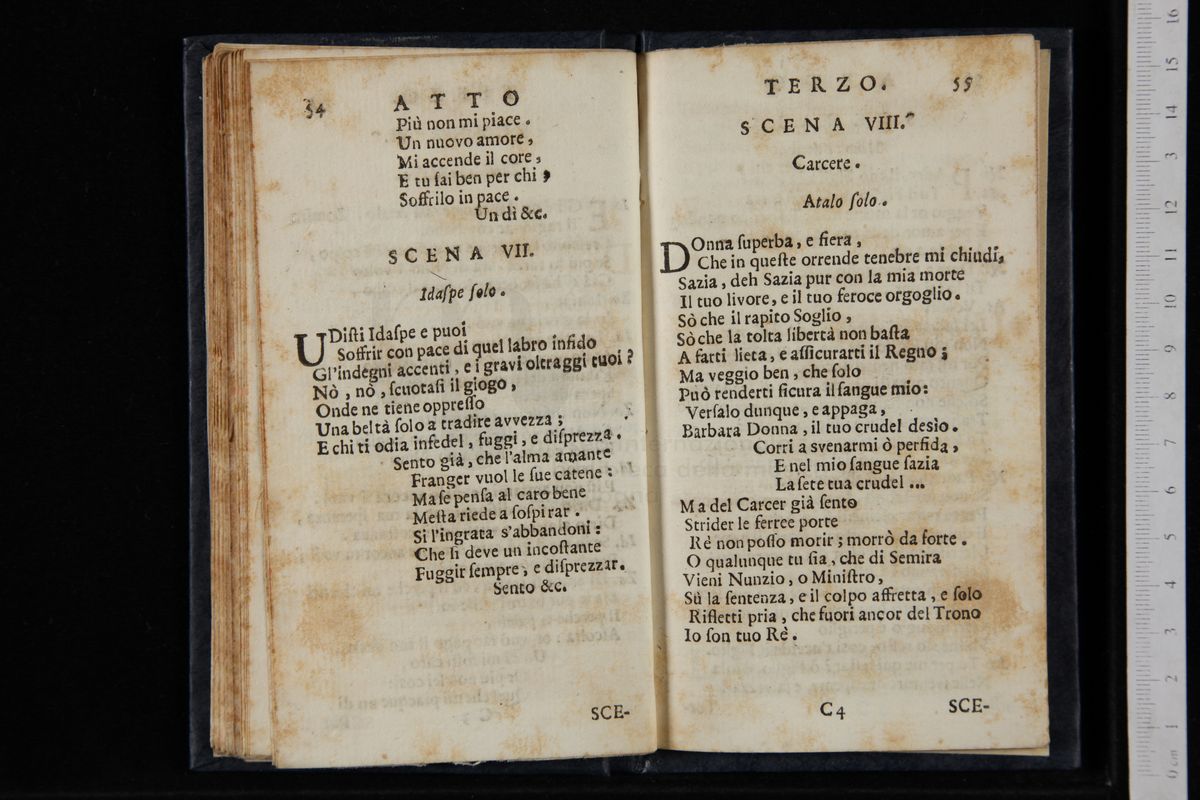 54
ATTO
Più non mi piace.
Un nuovo amore,
Mi accende il core,
E tu sai ben per chi,
Soffrilo in pace.
Un dì &c.
SCENA VII.
Idaſpe ſolo.
UDiſti Idaſpe e puoi
Soffrir con pace di quel labro infido
Gl'indegni accenti, e i gravi oltraggi tuoi?
Nò, nò, ſcuotaſi il giogo,
Onde ne tiene oppreſſo
Una beltà ſolo a tradire avvezza;
E chi ti odia infedel, fuggi, e diſprezza.
Sento già, che l'alma amante
Franger vuol le ſue catene:
Ma ſe penſa al caro bene
Meſta riede a ſoſpirar.
Si l'ingrata s'abbandoni:
Che ſi deve un incoſtante
Fuggir ſempre, e diſprezzar.
Sento &c.
SCE-
TERZO. 55
SCENA VIII.
Carcere.
Atalo ſolo.
DOnna ſuperba, e fiera,
Che in queſte orrende tenebre mi chiudi,
Sazia, deh Sazia pur con la mia morte
Il tuo livore, e il tuo feroce orgoglio.
Sò che il rapito Soglio,
Sò che la tolta libertà non baſta
A farti lieta, e aſſicurarti il Regno;
Ma veggio ben, che ſolo
Può renderti ſicura il ſangue mio:
Verſalo dunque, e appaga,
Barbara Donna, il tuo crudel desìo.
Corri a svenarmi ò perfida,
E nel mio ſangue ſazia
La ſete tua crudel...
Ma del Carcer già ſento
Strider le ferree porte
Rè non poſſo morir; morrò da forte.
O qualunque tu ſia, che di Semira
Vieni Nunzio, o Miniſtro,
Sù la ſentenza, e il colpo affretta, e ſolo
Rifletti pria, che fuori ancor del Trono
Io ſon tuo Rè.
C4 SCE-
0 cm 1 2 3 4 5 6 7 8 9 10 11 12 13 14 15 16